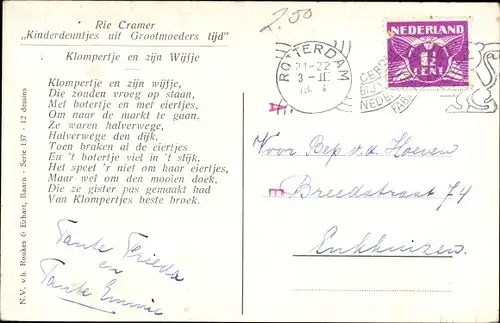 Rie Cramer
„Kinderdeuntjes uit Grootmoeders tijd"
Klompertje en zijn Wijfje
Klompertje en zijn wijfje,
Die zouden vroeg op staan,
Met botertje en met eiertjes,
Om naar de markt te gaan.
Ze waren halverwege,
Halverwege den dijk,
Toen braken al de eiertjes
En 't botertje viel in 't slijk.
Het speet 'r niet om haar eiertjes,
Maar wel om den mooien doek,
Die ze gister pas gemaakt had
Van Klompertjes beste broek.
Tante Frieda
en
Tante Emmie
N.V. v.h. Roukes & Erhart, Baarn - Serie 137 - 12 dessins
2.50
ROTTERDAM
21-22
3-II
NEDERLAND
1½
CENT
NEDER
FABR
A
Voor Bep v.d. Hoeven
E
Breedstraat 74
Enkhuizen.